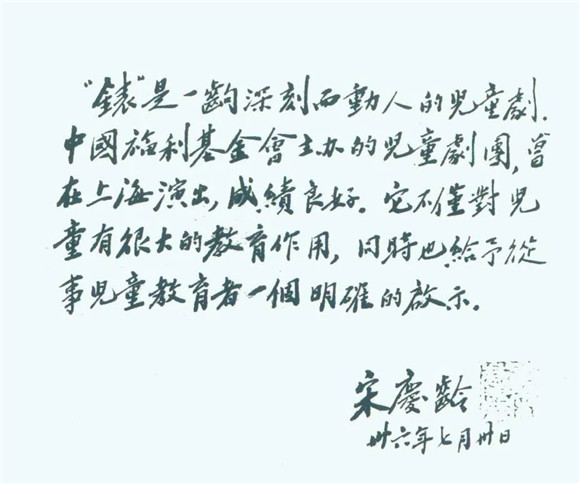 “錶”是一齣深刻而動人的兒童劇.
中國福利基金會主办的兒童劇團,曾
在上海演出,成績良好.它不僅對兒
童有很大的教育作用,同時也給予從
事兒童教育者一個明確的啟示.
宋慶齡
卅六年七月卅日